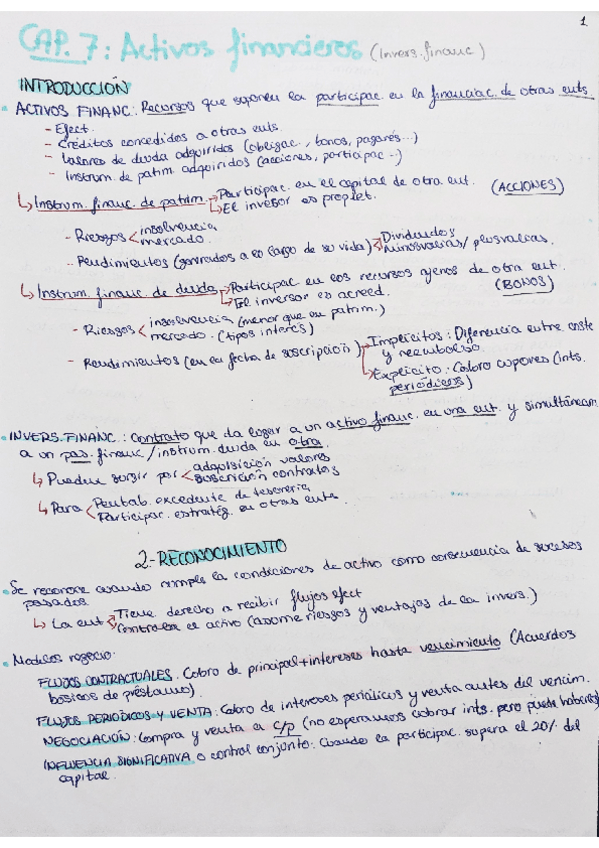 1
CAP. 7: Activos financieros (Invers. financ)
INTRODUCCIÓN
ACTIVOS FINANC: Recursos que suponen la participac. en la financiac. de otras ents.
- Efect.
- Créditos concedidos a otras ents.
- Valores de deuda adquiridos (obligac., bonos, pagarés...)
- Instrum. de patim. adquiridos (acciones, participac --)
↳ Instrum. financ. de patrim. → Participac. en el capital de otra ent. (ACCIONES)
↳ El inversor es propiet.
- Riesgos < insolvencia
mercado.
- Rendimientos (generados a lo largo de su vida) < Dividendos
Minusvalías/plusvalías.
↳ Instrum. financ. de deuda → Participac en los recursos ajenos de otra ent.
↳ El inversor es acreed. (BONOS)
- Riesgos < insolvencia (menor que en patrim.)
mercado. (tipos interés)
- Rendimientos (en la fecha de suscripción) → Implícitos: Diferencia entre coste
y reembolso
↳ Explícito: Cobro cupones (ints.
periódicos)
INVERS. FINANC.: Contrato que da lugar a un activo financ. en una ent. y simultáneam
a un pas. financ/instrum. deuda en otra.
↳ Pueden surgir por < adquisición valores
suscrición contratos
↳ Para < Rentab. excedente de tesorería
Participac. estratég. en otras ents.
2.- RECONOCIMIENTO
Se reconoce cuando cumple la condiciones de activo como consecuencia de sucesos
pasados
↳ La ent < Tiene derecho a recibir flujos efect
Controla el activo (asome riesgos y ventajas de la invers.)
Modelos negocio:
FLUJOS CONTRACTUALES: Cobro de principal+intereses hasta vencimiento (Acuerdos
básicos de préstamo).
FLUJOS PERIÓDICOS Y VENTA: Cobro de intereses periódicos y venta antes del vencim.
NEGOCIACIÓN: Compra y venta a c/p (no esperamos cobrar ints. pero puede haberlos)
INFLUENCIA SIGNIFICATIVA o control conjunto: Cuando la participac. supera el 20% del
capital.